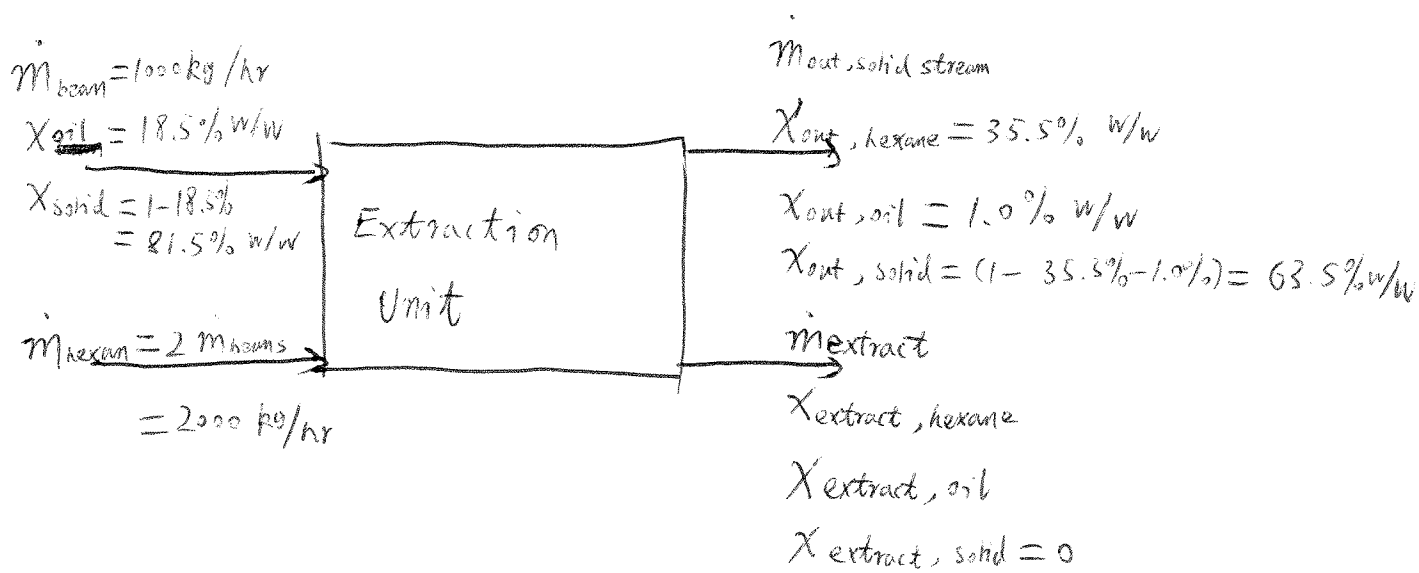 ṁ bean = 1000 kg/hr
X oil = 18.5% w/w
X solid = 1-18.5%
= 81.5% w/w
ṁ hexan = 2 ṁ beans
= 2000 kg/hr
Extraction
Unit
ṁ out, solid stream
X out, hexane = 35.5% w/w
X out, oil = 1.0% w/w
X out, solid = (1- 35.5%-1.0%) = 63.5% w/w
ṁ extract
X extract, hexane
X extract, oil
X extract, solid = 0